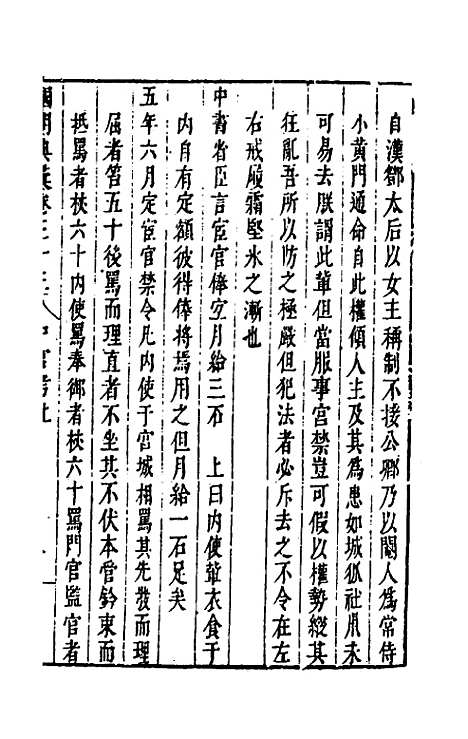 自漢鄧太后以女主稱制不接公卿乃以閹人爲常侍
小黃門通命自此權傾人主及其爲患如城狐社鼠未
可易去朕謂此輩但當服事宮禁豈可假以權勢縱其
狂亂吾所以防之極嚴但犯法者必斥去之不令在左
右戒履霜堅氷之漸也
中書省臣言宦官俸宜月給三石　上曰内使輩衣食于
内自有定額彼得俸將焉用之但月給一石足矣
五年六月定宦官禁令凡内使于宮城相罵其先發而理
屈者笞五十後罵而理直者不坐其不伏本管鈐束而
抵罵者杖六十内使罵奉御者杖六十罵門官監官者
國朝典彙卷三十三　中官考上